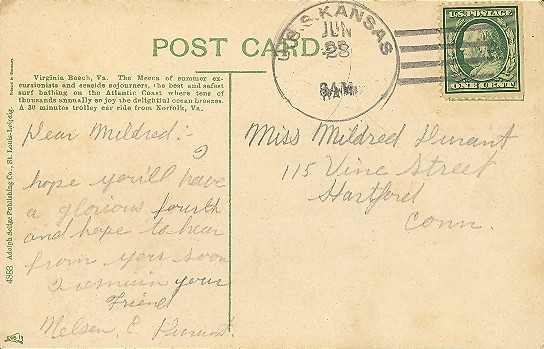 U.S.S. KANSAS
JUN
28
8AM
U.S. POSTAGE
POST CARD
Virginia Beach, Va. The Mecca of summer ex-
cursionists and seaside sojourners, the best and safest
surf bathing on the Atlantic Coast where tens of
thousands annually enjoy the delightful ocean breezes.
A 30 minutes trolley car ride from Norfolk, Va.
Dear Mildred:-
I
hope you'll have
a glorious fourth
and hope to hear
from you soon
I remain your
Friend
Nelson E. Durant.
Miss Mildred Durant
115 Vine Street
Hartford
Conn.
4883 Adolph Selige Publishing Co., St. Louis-Leipzig.
Printed in Germany.